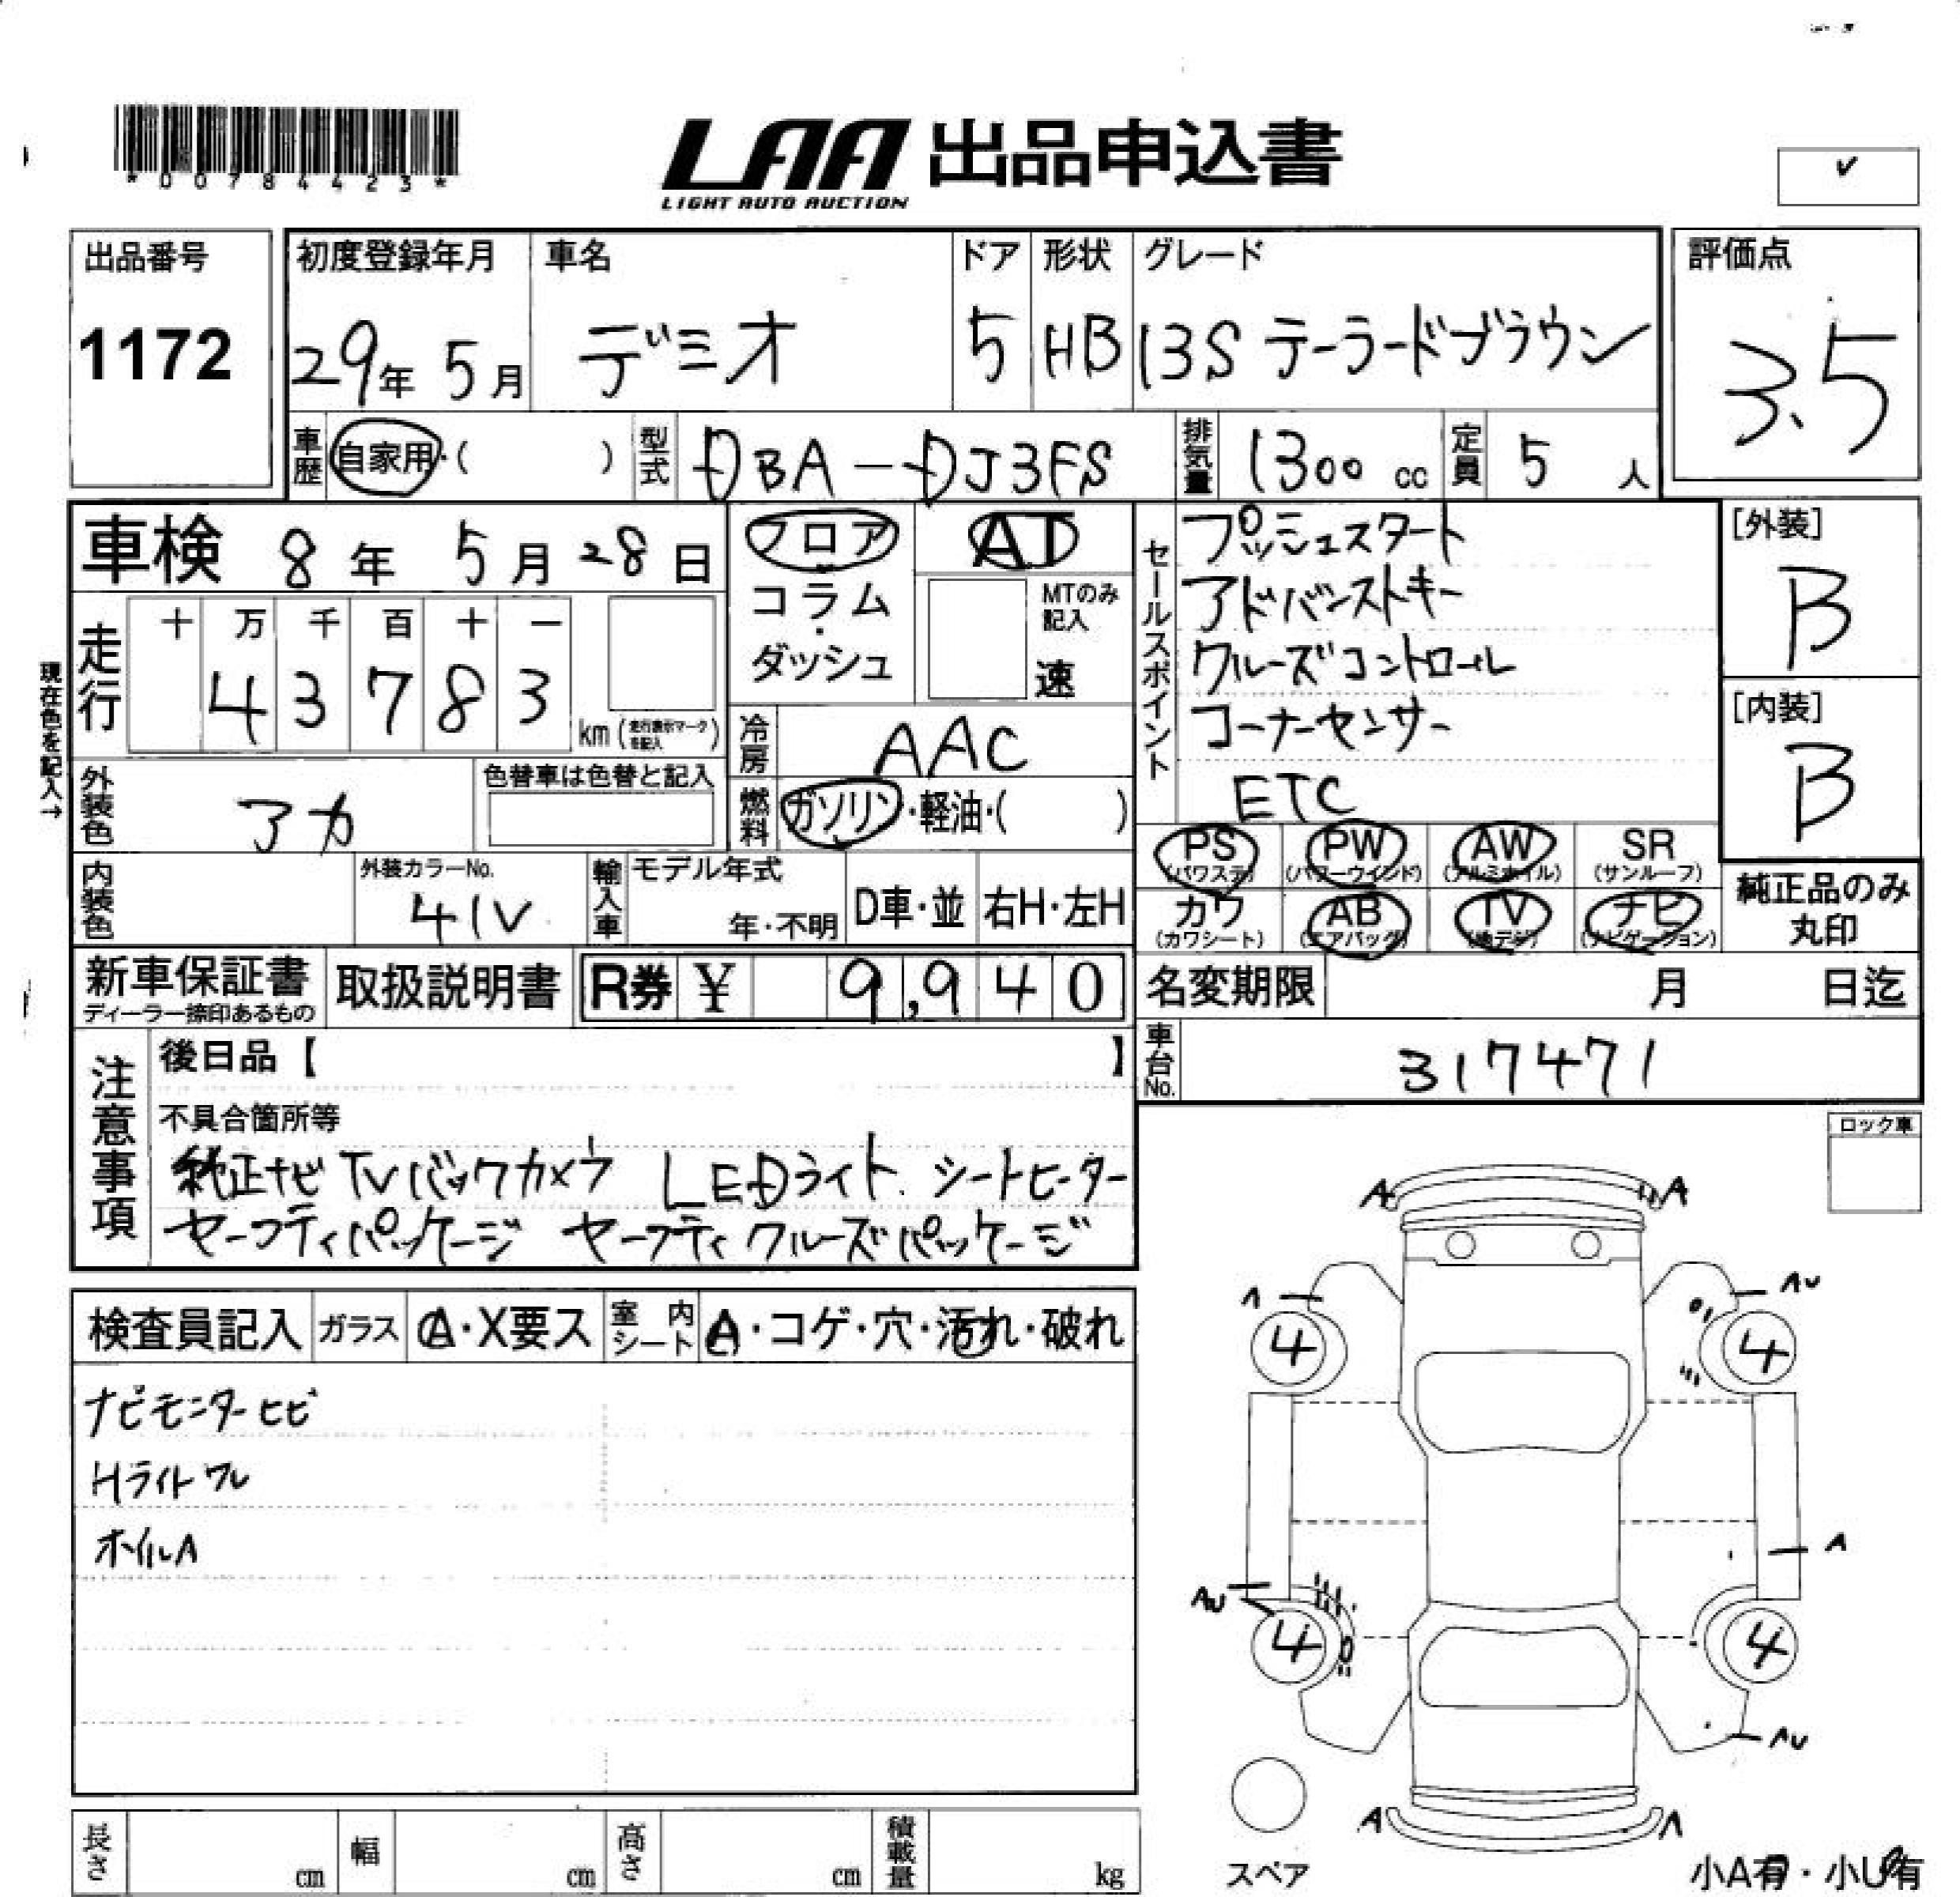 *00784423*
LAA 出品申込書
LIGHT AUTO AUCTION
✓
出品番号
1172
初度登録年月
29年 5月
車名
デミオ
ドア
5
形状
HB
グレード
13S テーラードブラウン
評価点
3.5
車歴 自家用・( )
型式 DBA-DJ3FS
排気量 1300 cc
定員 5 人
車検 8年 5月 28日
走行
十 万 千 百 十 一
4 3 7 8 3
km (走行表示マークを記入)
現在色を記入→
外装色 アカ
色替車は色替と記入
内装色
外装カラーNo.
41V
フロア
コラム
・
ダッシュ
AT
MTのみ記入
速
冷房 AAC
燃料 ガソリン・軽油・( )
輸入車
モデル年式
年・不明
D車・並
右H・左H
セールスポイント
プッシュスタート
アドバンストキー
クルーズコントロール
コーナーセンサー
ETC
[外装]
B
[内装]
B
PS (パワステ)
PW (パワーウインド)
AW (アルミホイル)
SR (サンルーフ)
カワ (カワシート)
AB (エアバッグ)
TV (地デジ)
ナビ (ナビゲーション)
純正品のみ
丸印
新車保証書
ディーラー捺印あるもの
取扱説明書
R券 ¥ 9,940
名変期限 月 日迄
車台No. 317471
注意事項
後日品【 】
不具合箇所等
純正ナビ TV バックカメラ LEDライト シートヒーター
セーフティパッケージ セーフティクルーズパッケージ
ロック車
検査員記入
ガラス
A・X要ス
室内シート
A・コゲ・穴・汚れ・破れ
ナビモニターヒビ
Hライトワレ
ホイルA
A A
A AU
4 4
A
AU
4 4
AU
A A
スペア
小A有・小U有
長さ cm
幅 cm
高さ cm
積載量 kg